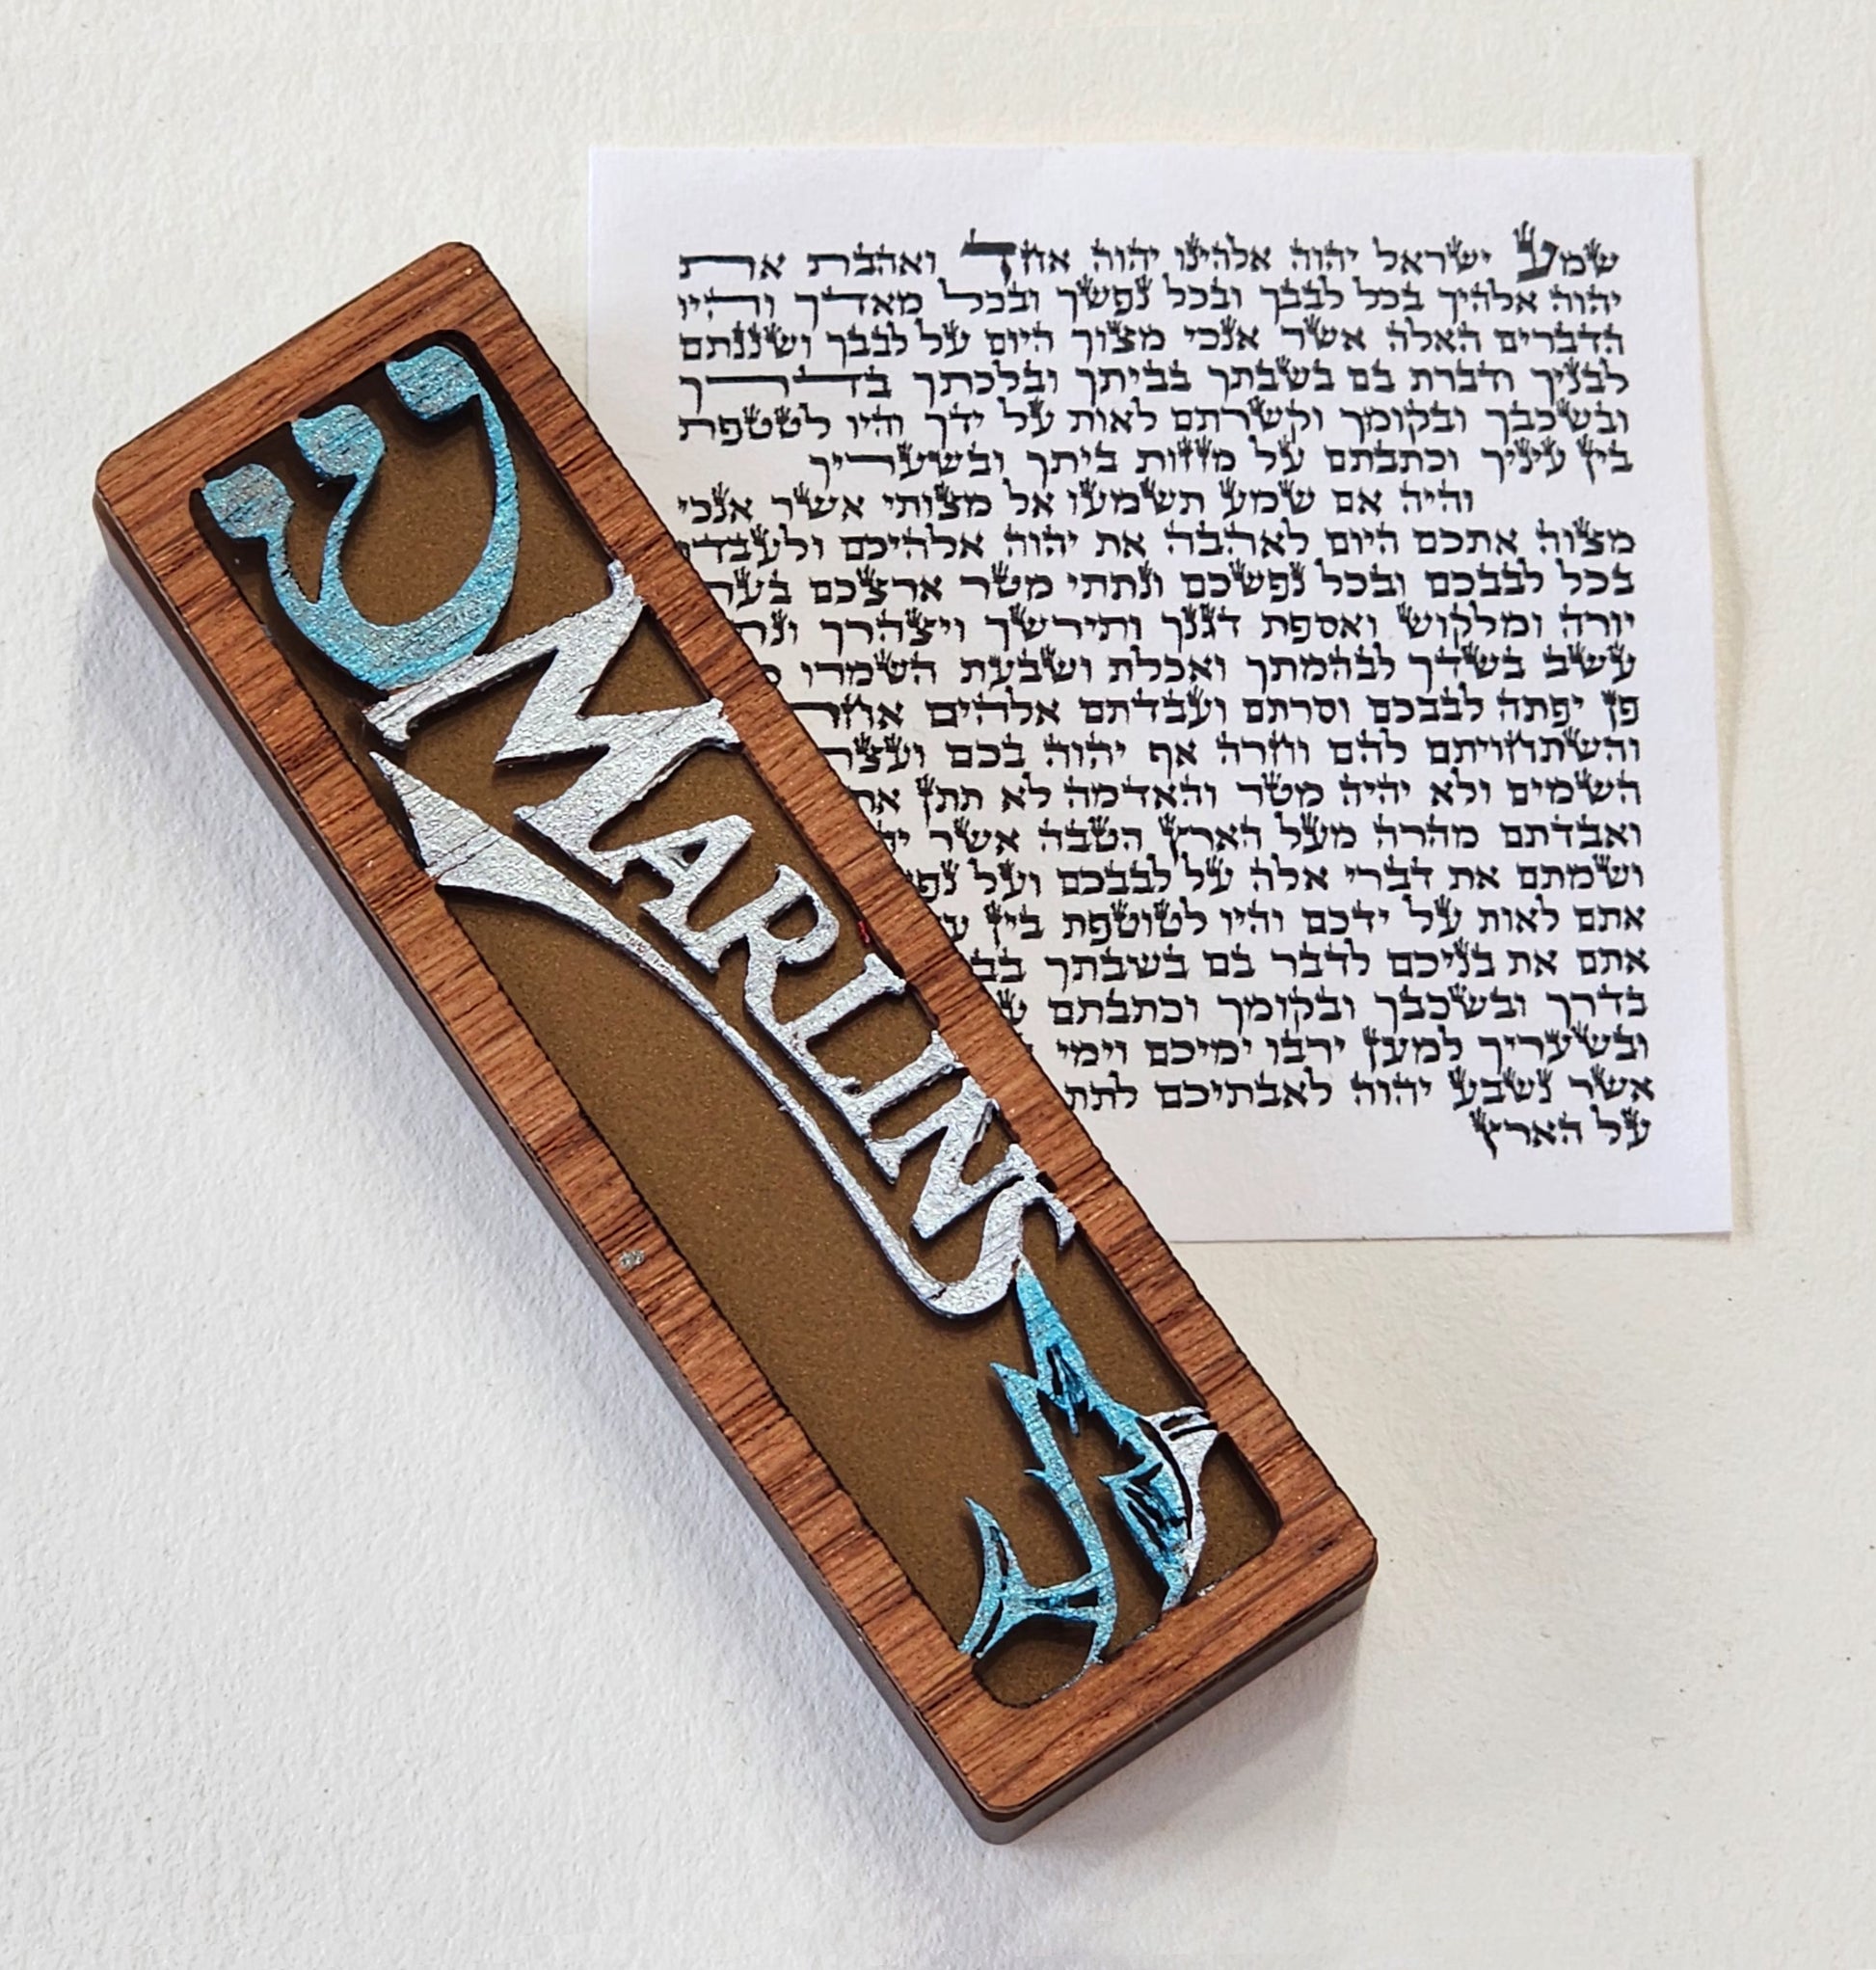 ש
MARLINS
שמע ישראל יהוה אלהינו יהוה אחד ואהבת את
יהוה אלהיך בכל לבבך ובכל נפשך ובכל מאדך והיו
הדברים האלה אשר אנכי מצוך היום על לבבך ושננתם
לבניך ודברת בם בשבתך בביתך ובלכתך בדרך
ובשכבך ובקומך וקשרתם לאות על ידך והיו לטטפת
בין עיניך וכתבתם על מזזות ביתך ובשעריך
והיה אם שמע תשמעו אל מצותי אשר אנכי
מצוה אתכם היום לאהבה את יהוה אלהיכם ולעבדו
בכל לבבכם ובכל נפשכם ונתתי מטר ארצכם
יורה ומלקוש ואספת דגנך ותירשך ויצהרך
עשב בשדך לבהמתך ואכלת ושבעת השמרו
פן יפתה לבבכם וסרתם ועבדתם אלהים
והשתחויתם להם וחרה אף יהוה בכם ועצר
השמים ולא יהיה מטר והאדמה לא תתן את
ואבדתם מהרה מעל הארץ הטבה אשר
ושמתם את דברי אלה על לבבכם ועל
אתם לאות על ידכם והיו לטוטפת בין
אתם את בניכם לדבר בם בשבתך
בדרך ובשכבך ובקומך וכתבתם
ובשעריך למען ירבו ימיכם וימי
אשר נשבע יהוה לאבתיכם לתת
על הארץ